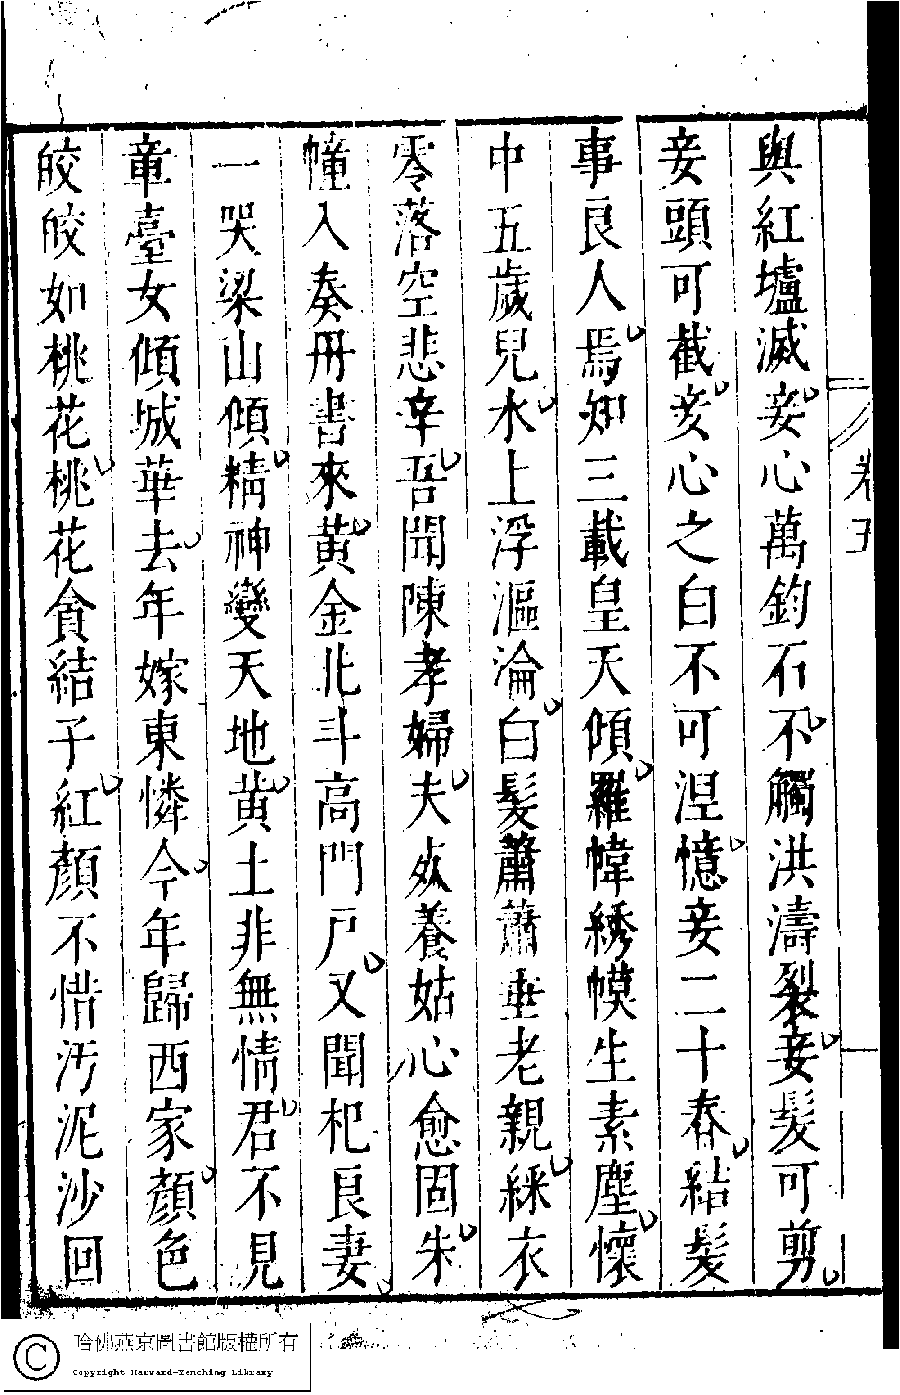 與紅壚滅妾心萬鈞石不觸洪濤裂妾髮可剪
妾頭可截妾心之白不可涅憶妾二十春結髮
事良人焉知三載皇天傾羅幃綉幙生素塵懷
中五歲兒水上浮漚淪白髮蕭蕭垂老親綵衣
零落空悲辛吾聞陳孝婦夫死養姑心愈固朱
幢入奏冊書來黃金北斗高門戶又聞杞良妻
一哭梁山傾精神變天地黃土非無情君不見
章臺女傾城華去年嫁東憐今年歸西家顏色
皎皎如桃花桃花貪結子紅顏不惜汚泥沙回
卷五
哈佛燕京圖書館版權所有
Copyright Harvard-Yenching Library